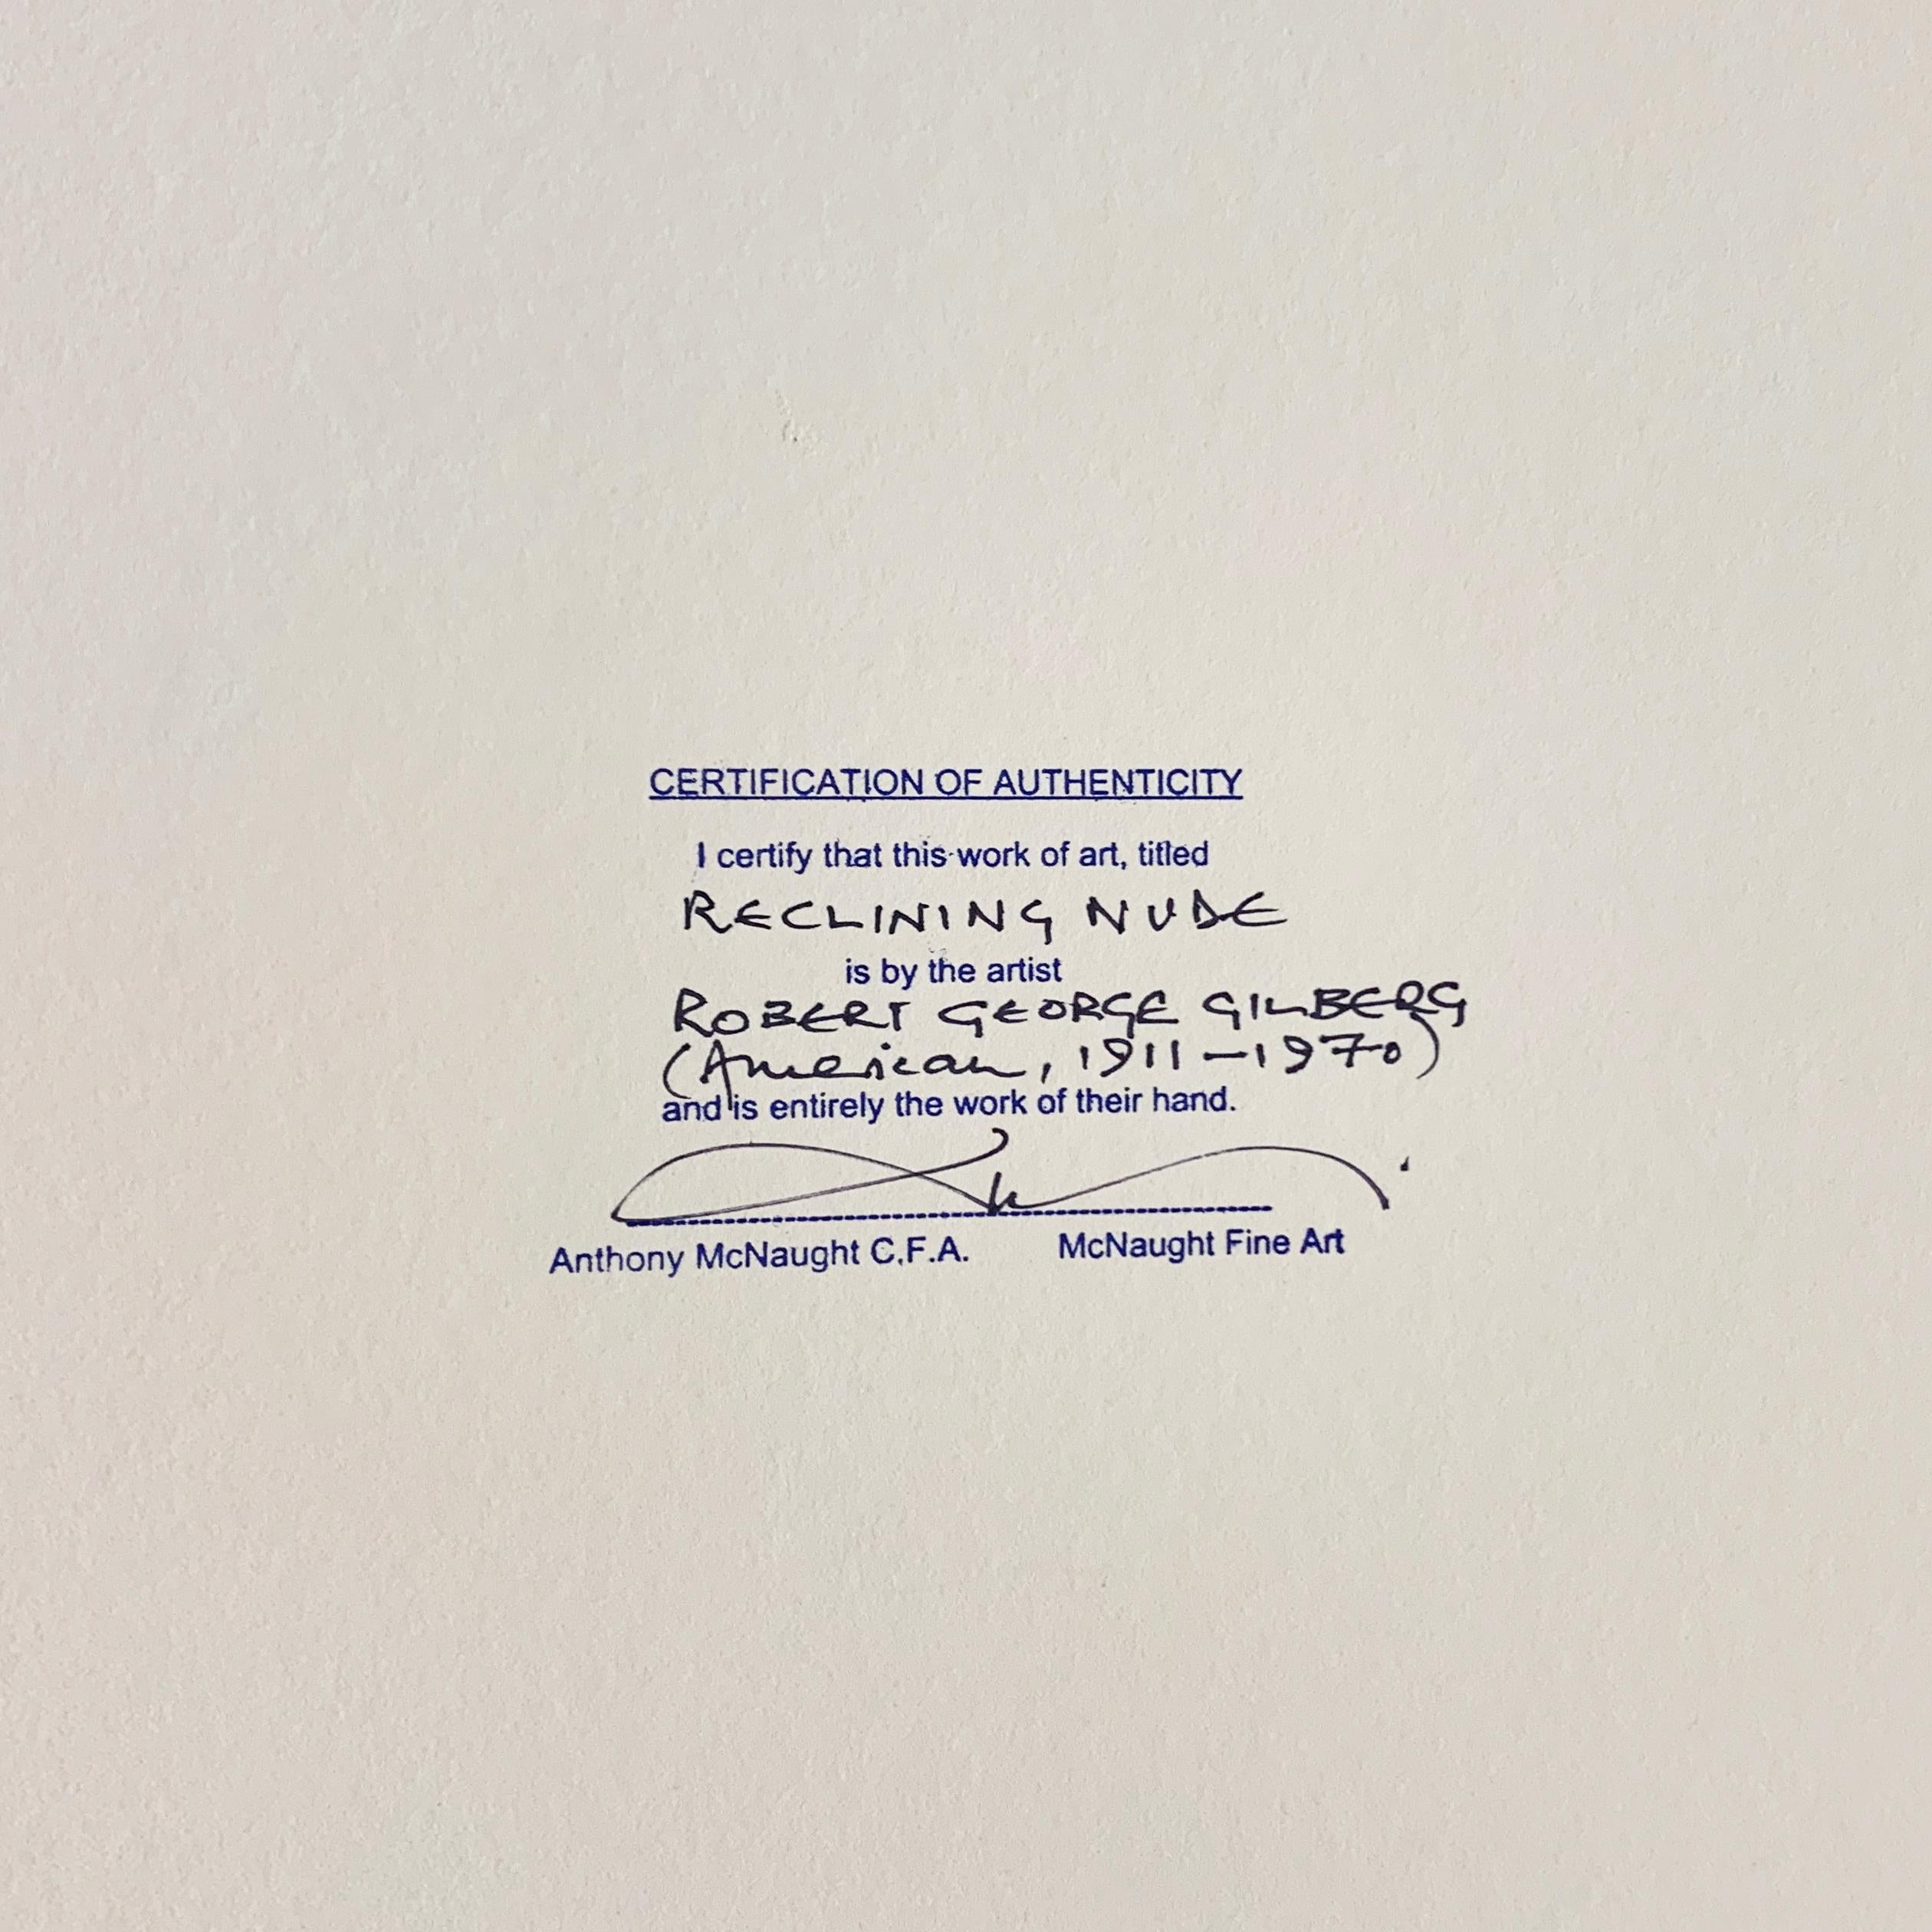 CERTIFICATION OF AUTHENTICITY
I certify that this work of art, titled
RECLINING NUDE
is by the artist
ROBERT GEORGE GILBERG
(American, 1911-1970)
and is entirely the work of their hand.
Anthony McNaught C.F.A. McNaught Fine Art